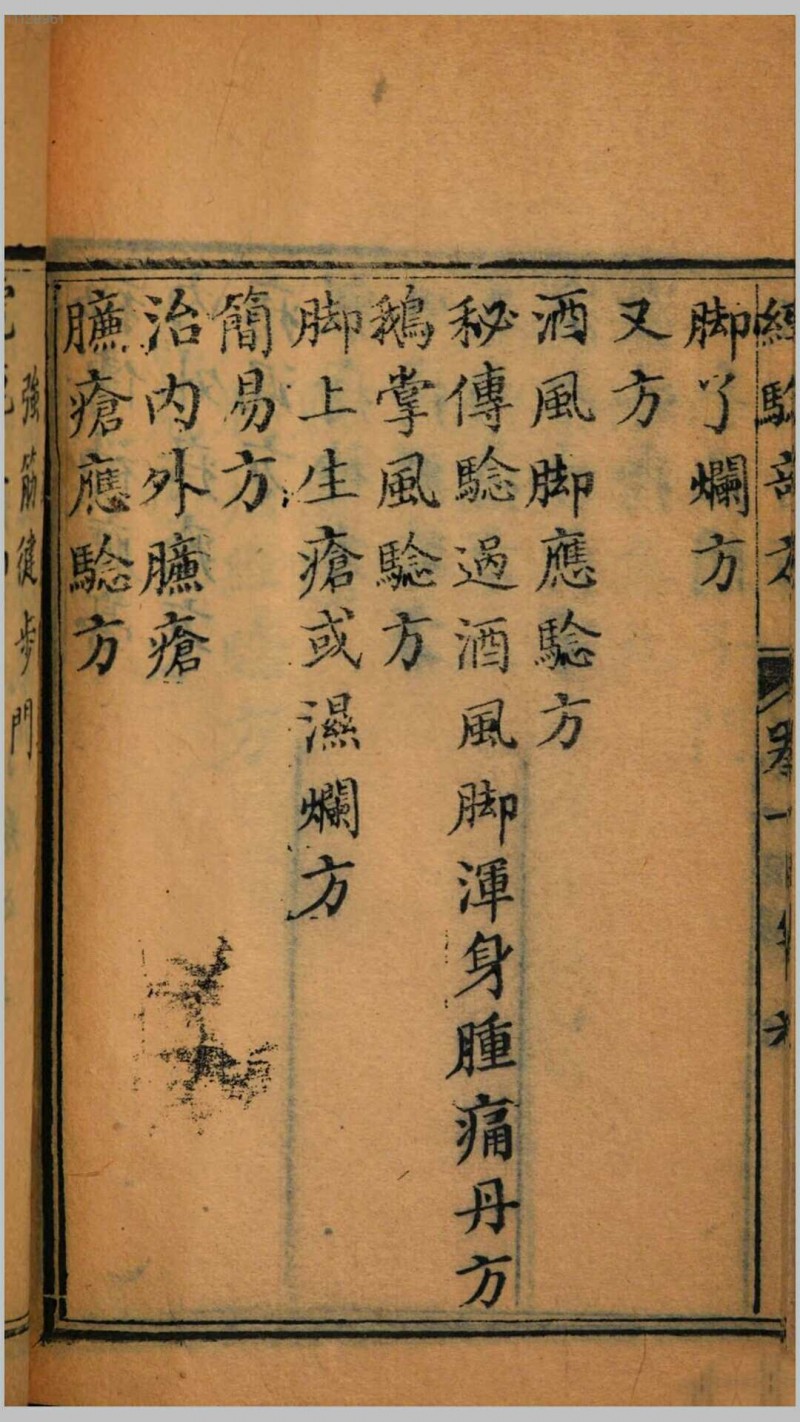 脚丫爛方
又方
酒風脚應騐方
秘傳騐過酒風脚渾身腫痛丹方
鵝掌風騐方
脚上生瘡或濕爛方
簡易方
治內外臁瘡
臁瘡應騐方
強筋健步門